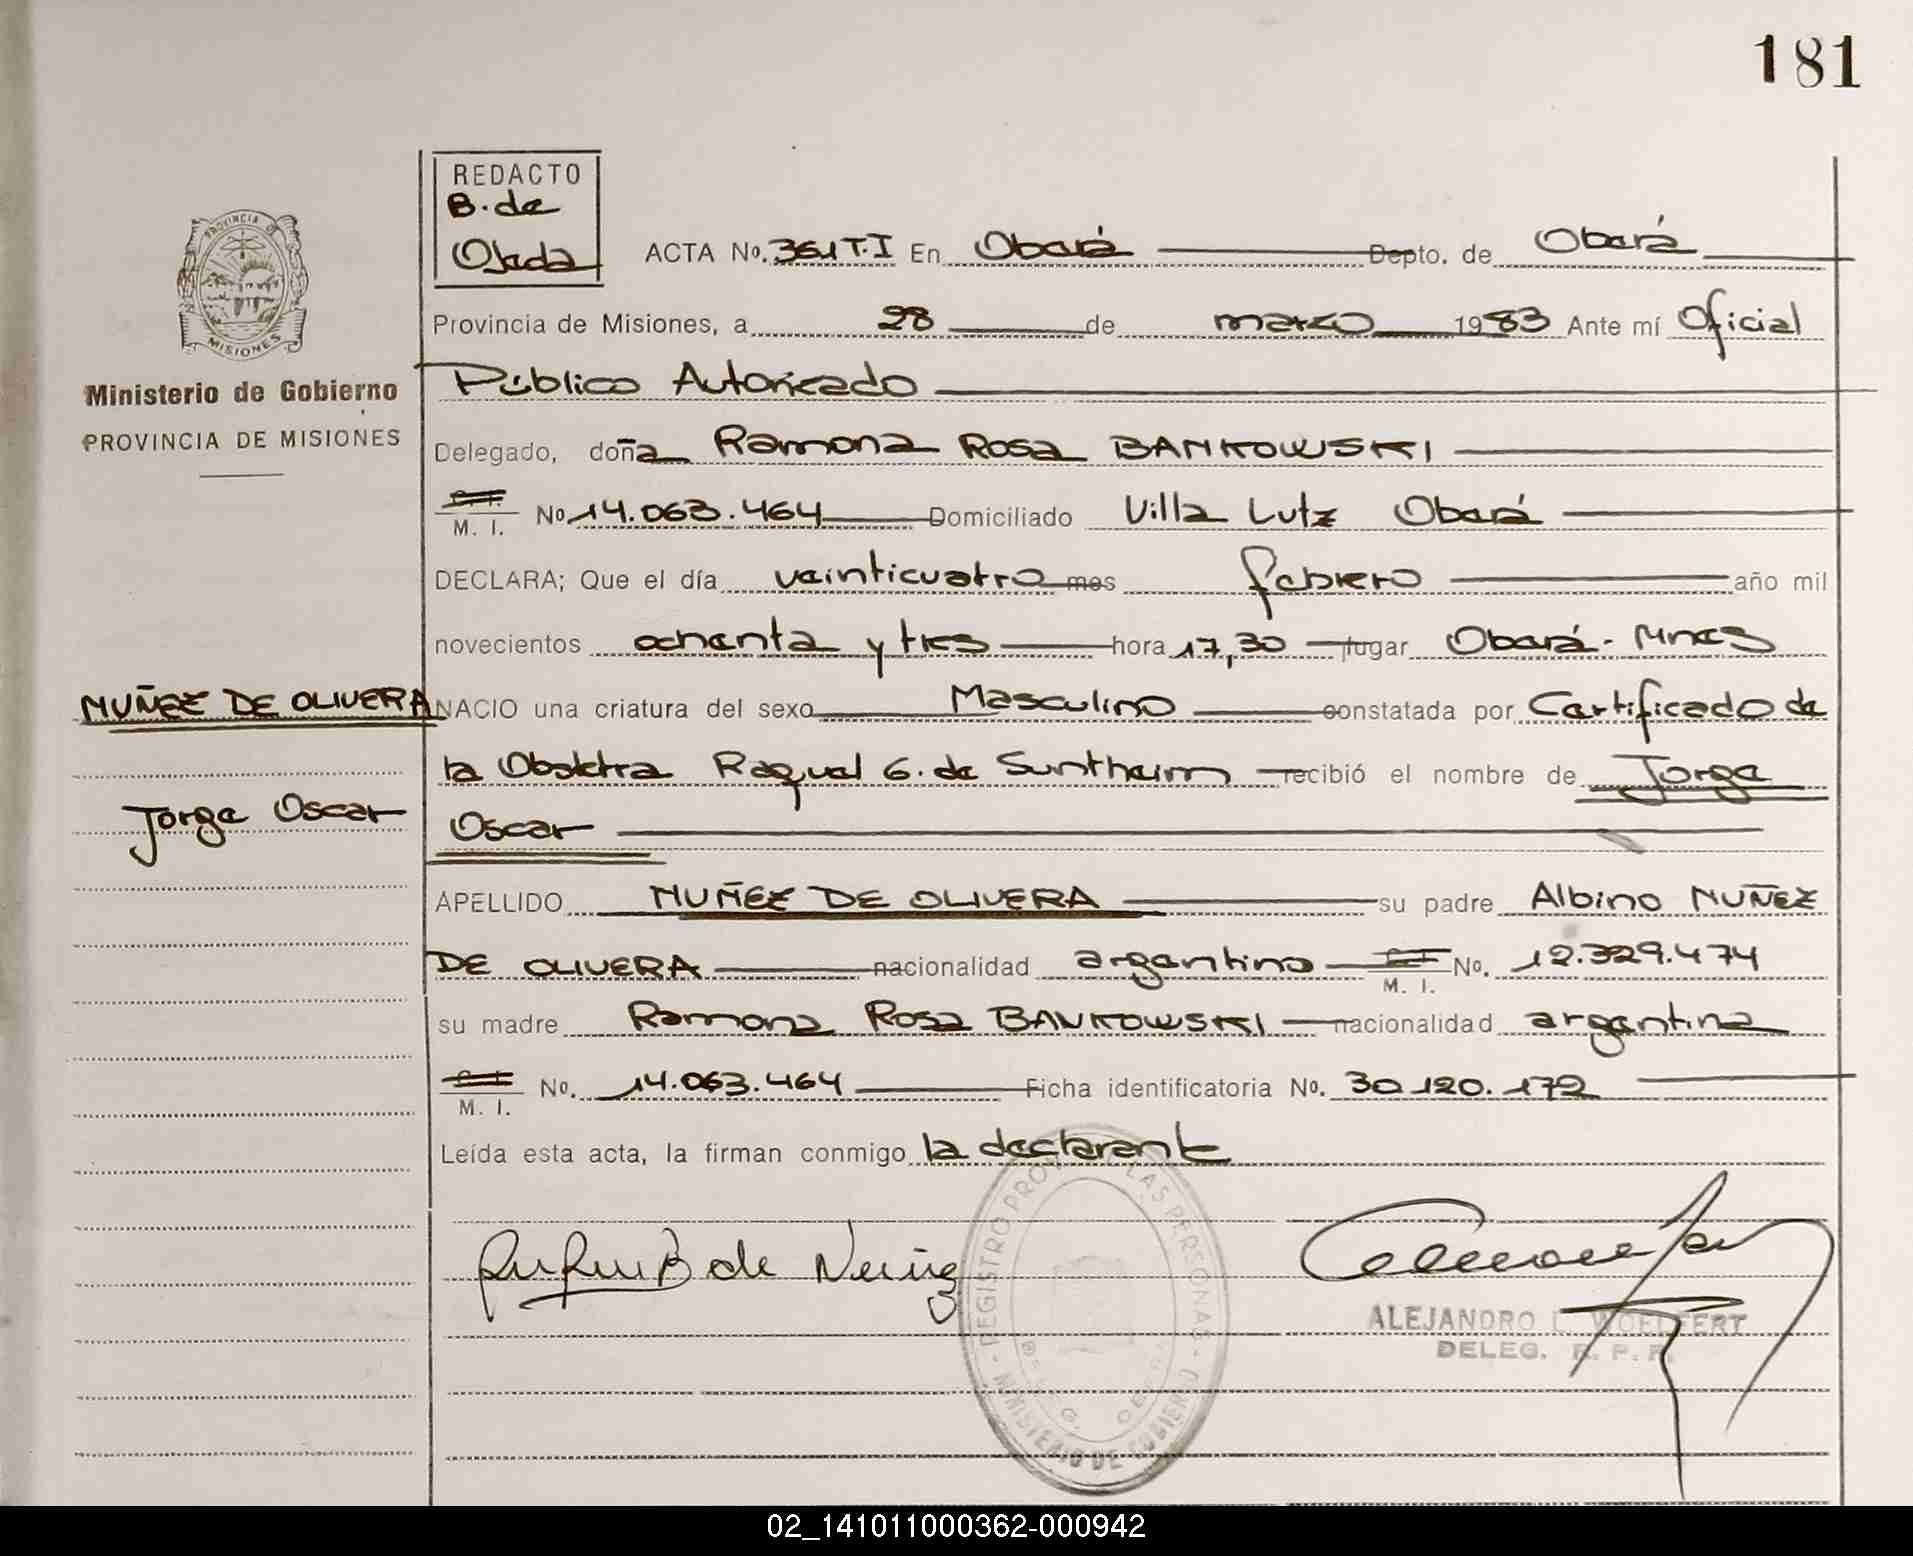 181
REDACTO
B. de
Ojeda
ACTA No. 361 T.I En Oberá Depto. de Oberá
Provincia de Misiones, a 28 de marzo 1983 Ante mí Oficial
Público Autorizado
Delegado, doña Ramona Rosa BANKOWSKI
M. I. No 14.063.464 Domiciliado Villa Lutz Oberá
DECLARA; Que el día veinticuatro mes febrero año mil
novecientos ochenta y tres hora 17,30 lugar Oberá - Mnes
NACIO una criatura del sexo Masculino constatada por Certificado de
la Obstetra Raquel G. de Suntheim recibió el nombre de Jorge
Oscar
APELLIDO NUÑEZ DE OLIVERA su padre Albino NUÑEZ
DE OLIVERA nacionalidad argentino M. I. No. 12.329.474
su madre Ramona Rosa BANKOWSKI nacionalidad argentina
M. I. No. 14.063.464 Ficha identificatoria No. 30.120.172
Leída esta acta, la firman conmigo la declarante
PROVINCIA DE
MISIONES
Ministerio de Gobierno
PROVINCIA DE MISIONES
NUÑEZ DE OLIVERA
Jorge Oscar
B de Nuñez
REGISTRO PROV. LAS PERSONAS - MINISTERIO DE GOBIERNO
DELEG. OBERA
ALEJANDRO L. WOELFERT
DELEG. R. P. P.
02_141011000362-000942